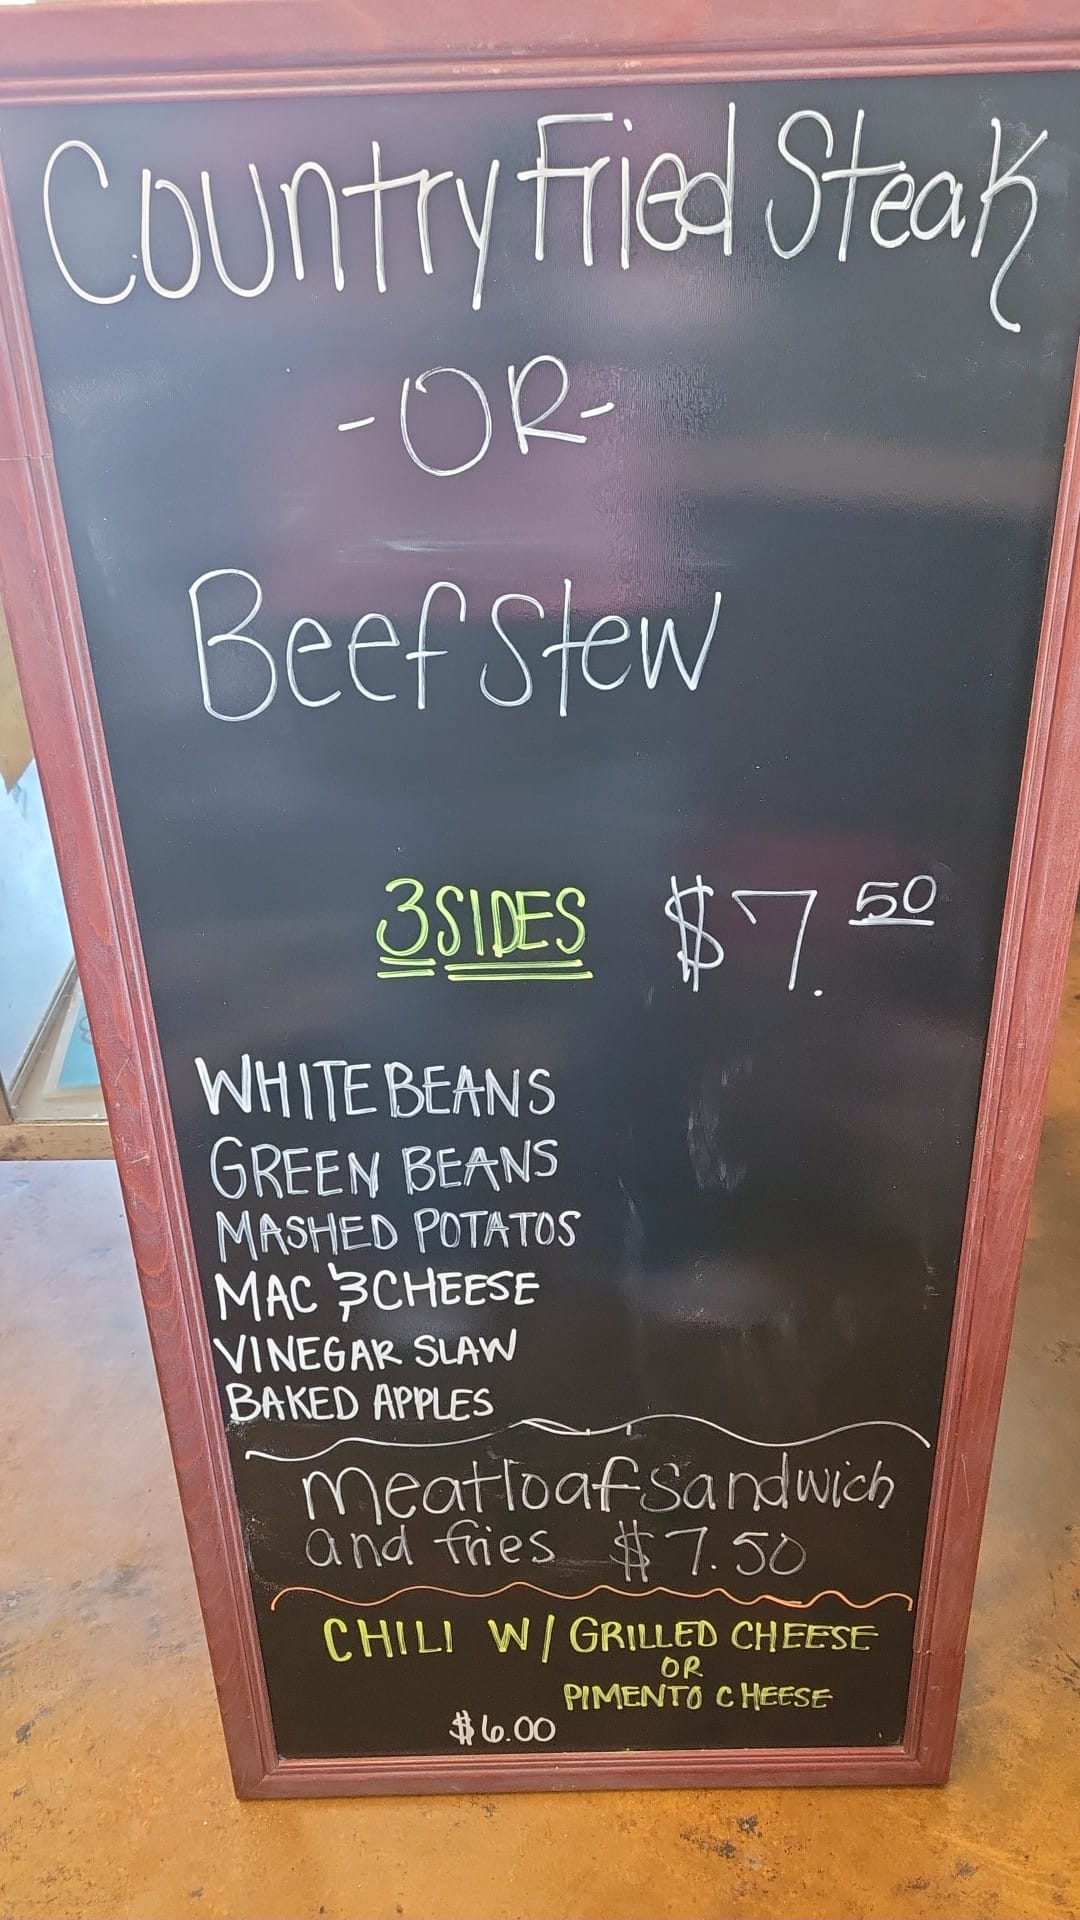 Country Fried Steak
-OR-
Beef Stew
3 SIDES $7.50
WHITE BEANS
GREEN BEANS
MASHED POTATOS
MAC & CHEESE
VINEGAR SLAW
BAKED APPLES
meatloaf sandwich
and fries $7.50
CHILI W/ GRILLED CHEESE
OR
PIMENTO CHEESE
$6.00